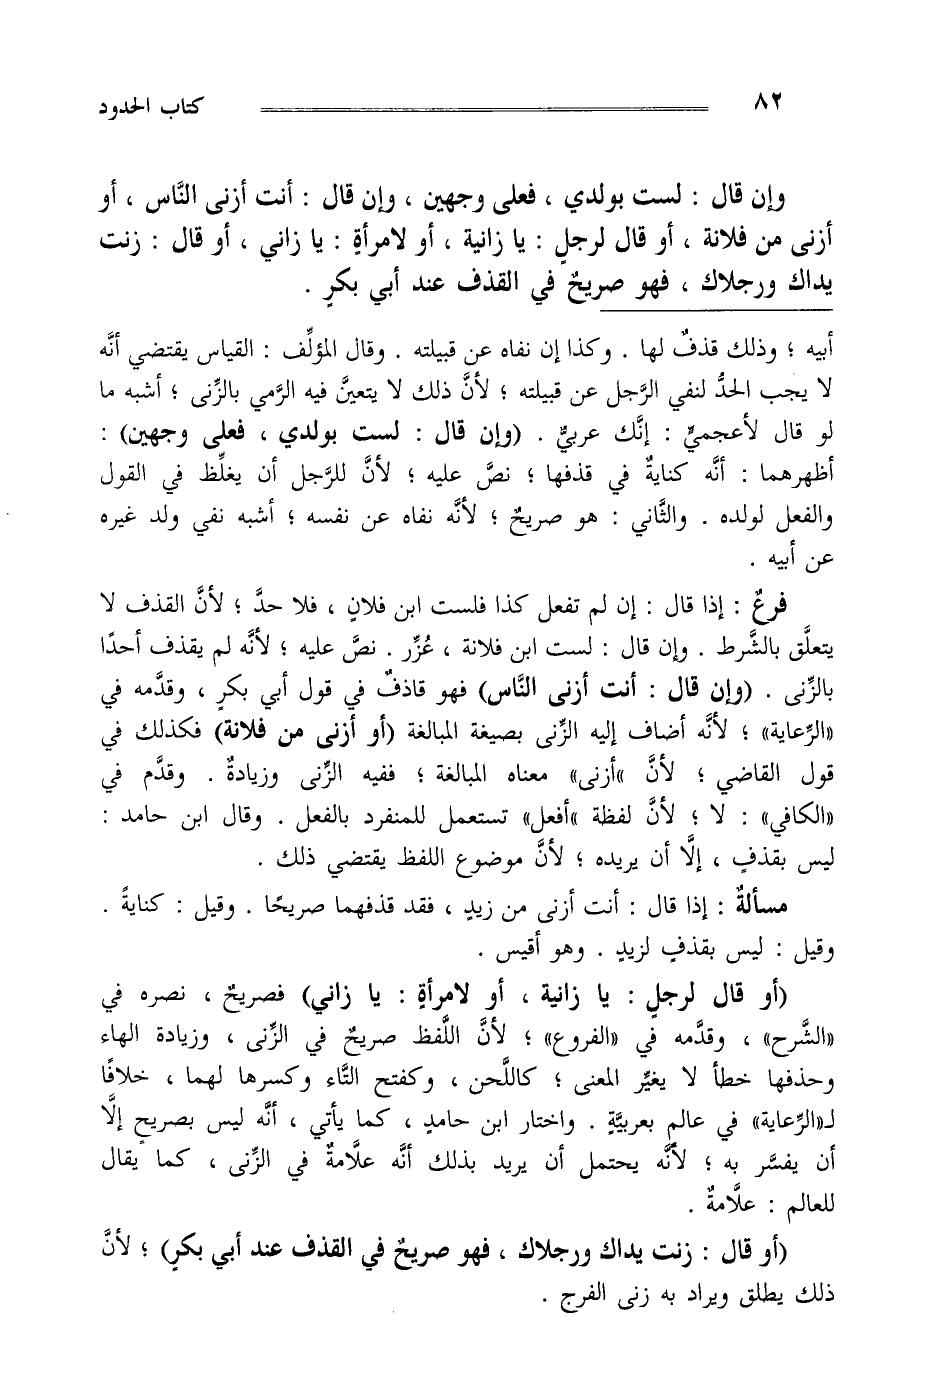 ٨٢ كتاب الحدود
وإن قال : لست بولدي ، فعلى وجهين ، وإن قال : أنت أزنى النَّاس ، أو
أزنى من فلانة ، أو قال لرجلٍ : يا زانية ، أو لامرأةٍ : يا زاني ، أو قال : زنت
يداك ورجلاك ، فهو صريحٌ في القذف عند أبي بكرٍ .
أبيه ؛ وذلك قذفٌ لها . وكذا إن نفاه عن قبيلته . وقال المؤلِّف : القياس يقتضي أنَّه
لا يجب الحدُّ لنفي الرَّجل عن قبيلته ؛ لأنَّ ذلك لا يتعينَّ فيه الرَّمي بالزِّنى ؛ أشبه ما
لو قال لأعجميٍّ : إنَّك عربيٌّ . (وإن قال : لست بولدي ، فعلى وجهين) :
أظهرهما : أنَّه كنايةٌ في قذفها ؛ نصَّ عليه ؛ لأنَّ للرَّجل أن يغلِّظ في القول
والفعل لولده . والثَّاني : هو صريحٌ ؛ لأنَّه نفاه عن نفسه ؛ أشبه نفي ولد غيره
عن أبيه .
فرعٌ : إذا قال : إن لم تفعل كذا فلست ابن فلانٍ ، فلا حدَّ ؛ لأنَّ القذف لا
يتعلَّق بالشَّرط . وإن قال : لست ابن فلانة ، عُزِّر . نصَّ عليه ؛ لأنَّه لم يقذف أحدًا
بالزِّنى . (وإن قال : أنت أزنى النَّاس) فهو قاذفٌ في قول أبي بكرٍ ، وقدَّمه في
«الرِّعاية» ؛ لأنَّه أضاف إليه الزِّنى بصيغة المبالغة (أو أزنى من فلانة) فكذلك في
قول القاضي ؛ لأنَّ «أزنى» معناه المبالغة ؛ ففيه الزِّنى وزيادةٌ . وقدَّم في
«الكافي» : لا ؛ لأنَّ لفظة «أفعل» تستعمل للمنفرد بالفعل . وقال ابن حامد :
ليس بقذفٍ ، إلَّا أن يريده ؛ لأنَّ موضوع اللفظ يقتضي ذلك .
مسألةٌ : إذا قال : أنت أزنى من زيدٍ ، فقد قذفهما صريحًا . وقيل : كنايةً .
وقيل : ليس بقذفٍ لزيدٍ . وهو أقيس .
(أو قال لرجلٍ : يا زانية ، أو لامرأةٍ : يا زاني) فصريحٌ ، نصره في
«الشَّرح» ، وقدَّمه في «الفروع» ؛ لأنَّ اللَّفظ صريحٌ في الزِّنى ، وزيادة الهاء
وحذفها خطأ لا يغيِّر المعنى ؛ كاللَّحن ، وكفتح التَّاء وكسرها لهما ، خلافًا
لـ«الرِّعاية» في عالمٍ بعربيَّةٍ . واختار ابن حامدٍ ، كما يأتي ، أنَّه ليس بصريحٍ إلَّا
أن يفسَّر به ؛ لأنَّه يحتمل أن يريد بذلك أنَّه علَّامةٌ في الزِّنى ، كما يقال
للعالم : علَّامةٌ .
(أو قال : زنت يداك ورجلاك ، فهو صريحٌ في القذف عند أبي بكرٍ) ؛ لأنَّ
ذلك يطلق ويراد به زنى الفرج .